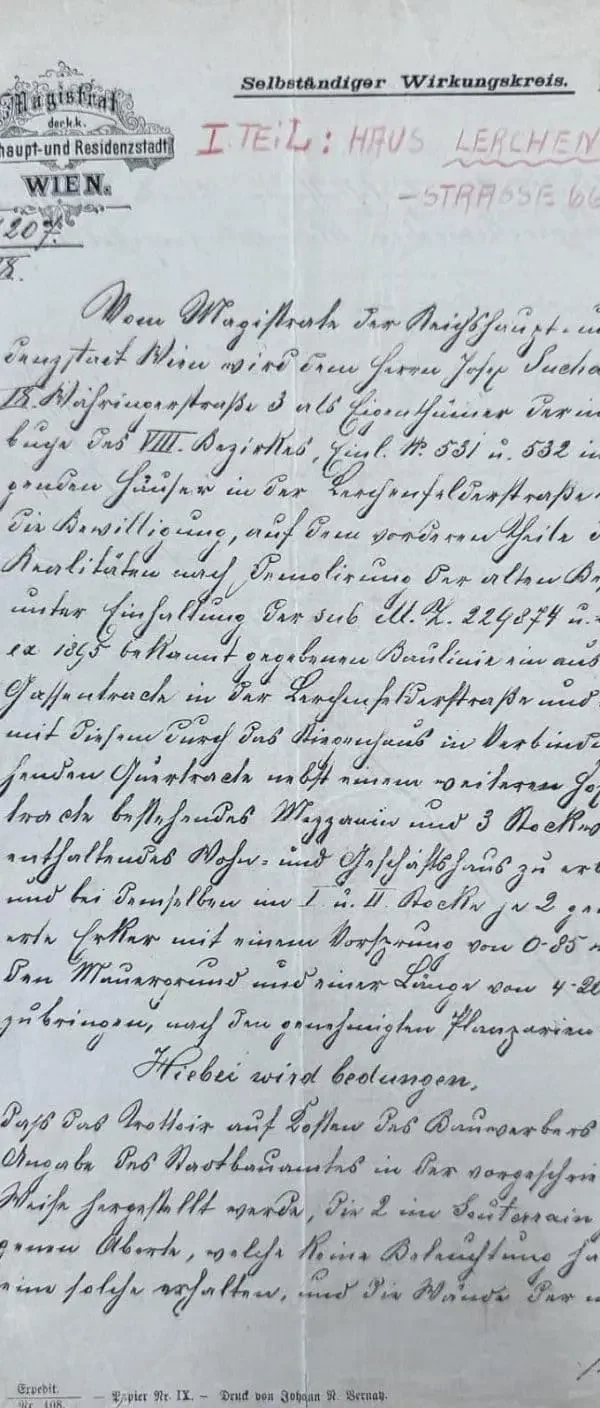 Magistrat
der k.k.
haupt- und Residenzstadt
WIEN.
Selbständiger Wirkungskreis.
I. TEIL: HAUS LERCHEN
-STRASSE 66
207.
Vom Magistrate der Reichshaupt- u
denzstadt Wien wird dem Herrn Josef Sucha
IX. Währingerstraße 3 als Eigenthümer der in
buche des VIII. Bezirkes, Einl. N. 531 u. 532 in
genden Häuser in der Lerchenfelderstraße
die Bewilligung, auf dem vorderen Theile d
Realitäten nach Demolirung der alten Be
unter Einhaltung der sub M. Z. 229874 u.
ex 1895 bekannt gegebenen Baulinie ein aus
Gassentracte in der Lerchenfelderstraße und
mit diesem durch das Stiegenhaus in Verbind
henden Quertracte nebst einem weiteren Hof
tracte bestehendes Mezzanin und 3 Stockw
enthaltendes Wohn- und Geschäftshaus zu er
und bei demselben im I. u. II. Stocke je 2 ge
erte Erker mit einem Vorsprung von 0·85
den Mauergrund und einer Länge von 4·20
zubringen, nach den genehmigten Planparien
Hiebei wird bedungen,
daß das Trottoir auf Kosten des Bauwerbers
Angabe des Stadtbauamtes in der vorgeschrie
Weise hergestellt werde, die 2 im Souterrain
genen Aborte, welche keine Beleuchtung ha
eine solche erhalten, und die Wände der
Expedit.
Nr. 408. — Papier Nr. IX. — Druck von Johann N. Vernay.